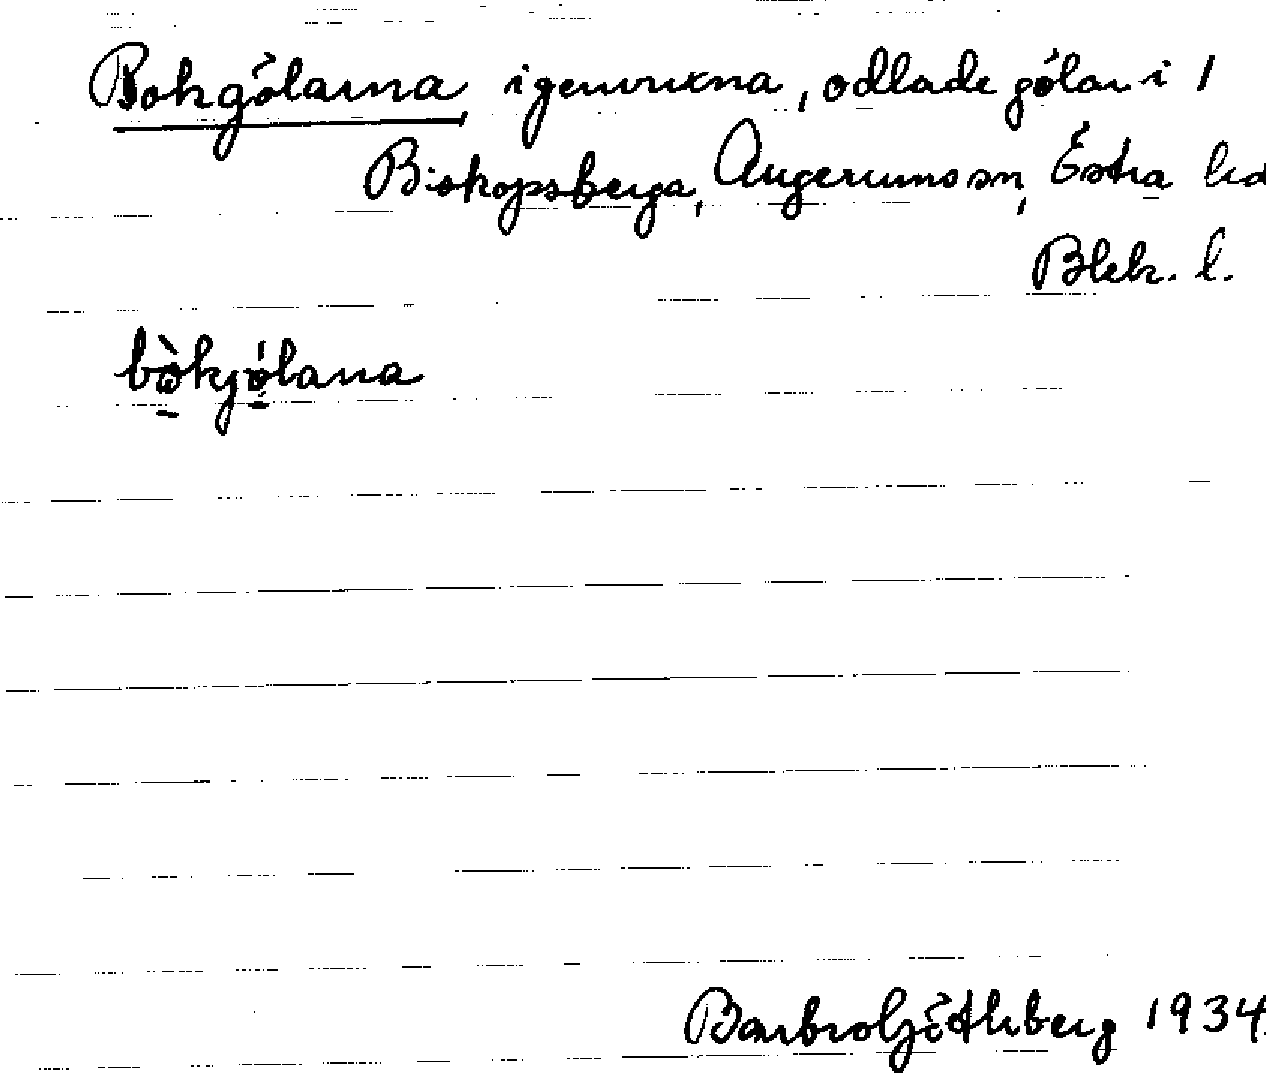 Bokgölarna igenvuxna, odlade gölar i 1
Biskopsberga, Augerums sn, Östra hd
Blek. l.
bòkjǿlana
Barbro Göthberg 1934.